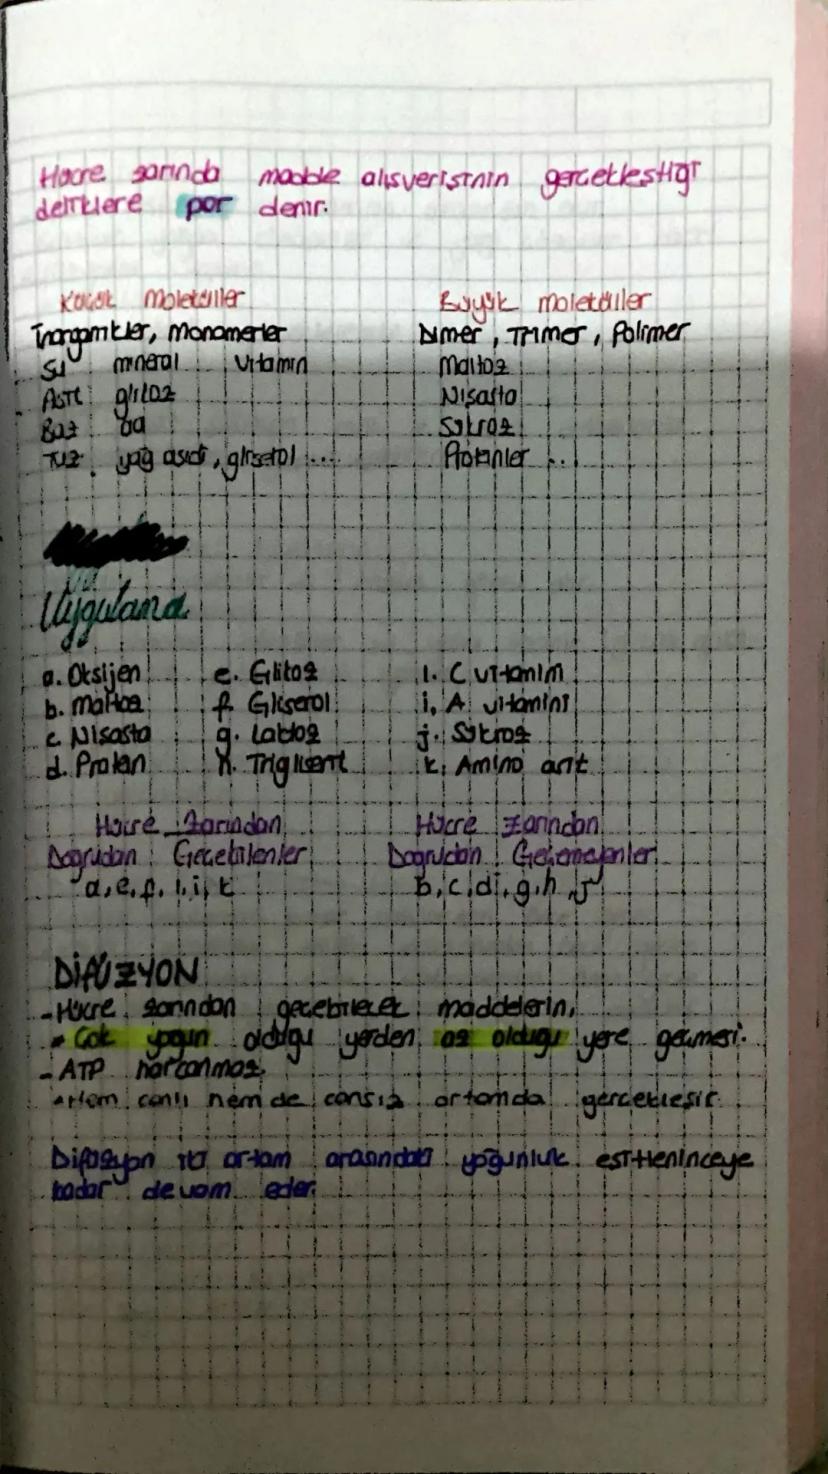 Hücre zarında madde alışverişinin gerçekleştiği
deliklere por denir.
Küçük Moleküller
Büyük moleküller
İnorganikler, Monomerler
Dimer, Trimer, Polimer
Su mineral vitamin
Maltoz
Asit glikoz
Nişasta
Baz aa
Sükroz
Tuz yağ asidi, gliserol ...
Proteinler ..
Uygulama
a. Oksijen e. Glikoz ı. C vitamini
b. maltoz f. Gliserol i. A vitamini
c. Nişasta g. Laktoz j. Sükroz
d. Protein h. Trigliserit k. Amino asit
Hücre Zarından
Doğrudan Geçebilenler
a, e, f, ı, i, k
Hücre zarından
Doğrudan Geçemeyenler
b, c, d, g, h, j
DİFÜZYON
- Hücre zarından geçebilecek maddelerin,
• Çok yoğun olduğu yerden az olduğu yere geçmesi.
- ATP harcanmaz.
• Hem canlı hem de cansız ortamda gerçekleşir.
Difüzyon iki ortam arasındaki yoğunluk eşitleninceye
kadar devam eder.